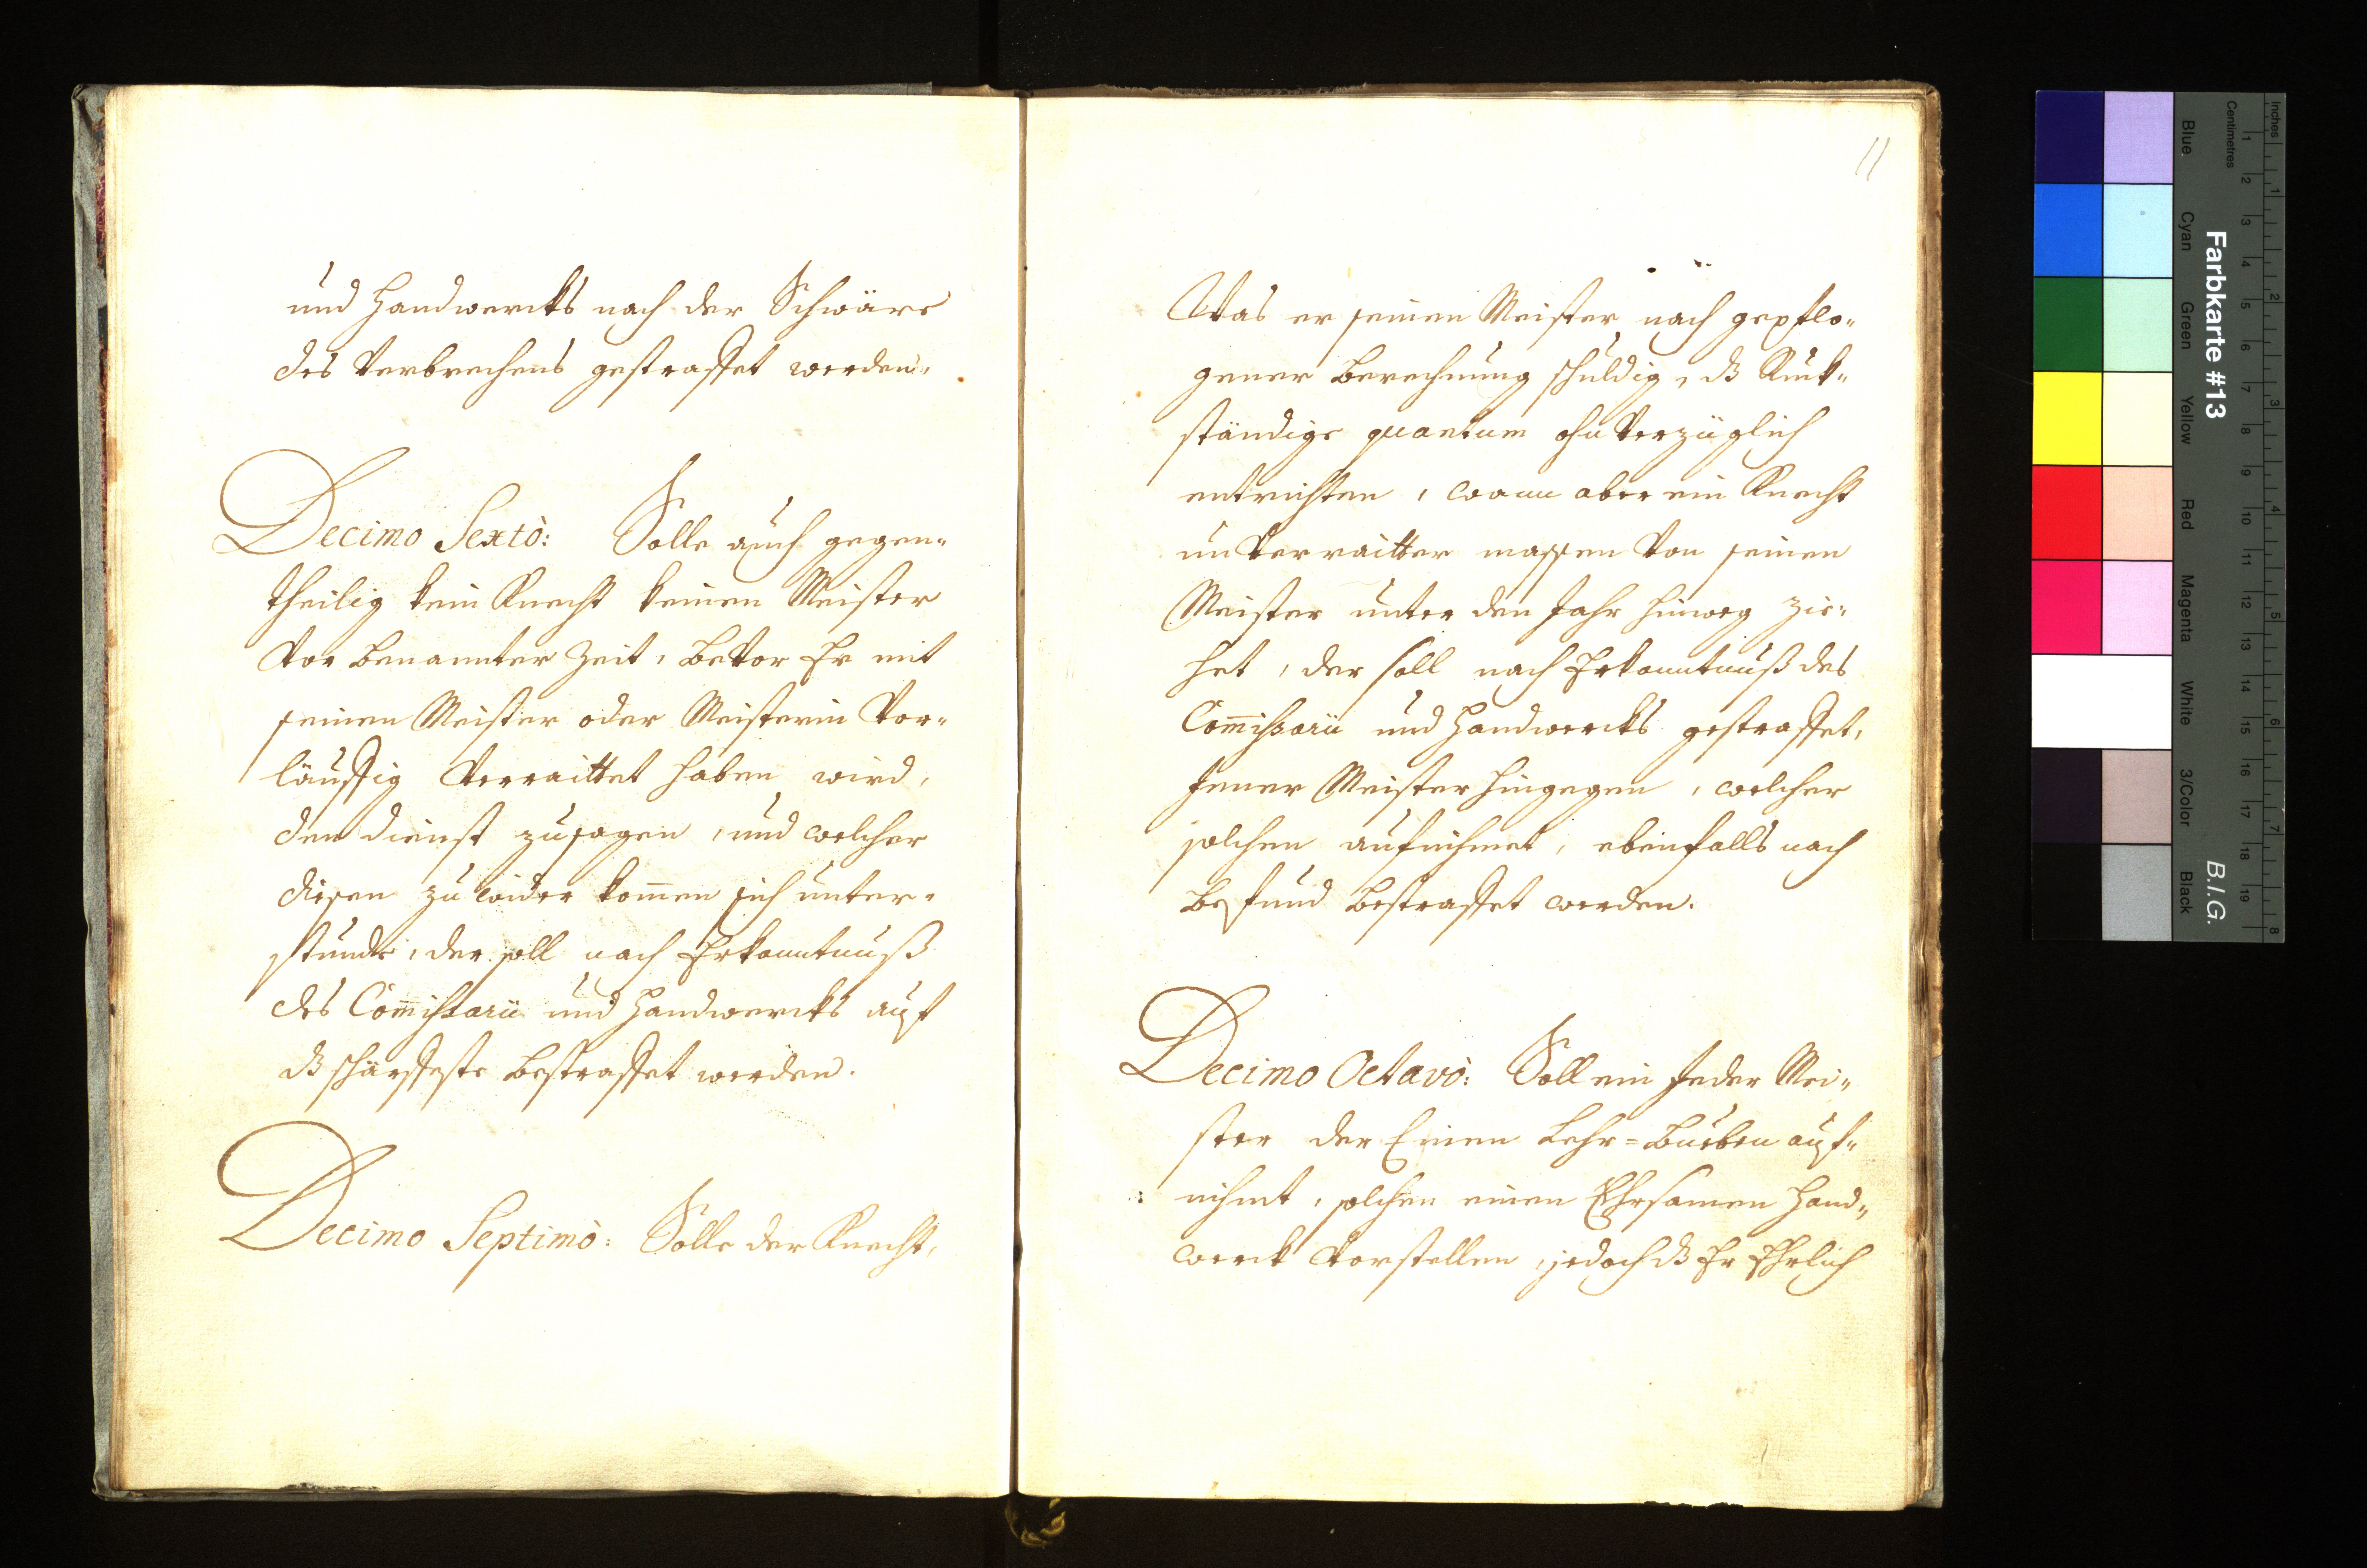 und Handwercks nach der Schwäre
des Verbrechens gestraffet werden.
Decimo Sextò: Solle auch gegen-
theilig kein Knecht keinen Meister
vor benannter Zeit, bevor Er mit
seinen Meister oder Meisterin vor-
läuffig verraittet haben wird,
den dienst zusagen, und welcher
diesen zu wider kom̅en sich unter-
stunde, der soll nach Erkanntnuß
des Com̅issarii und Handwercks auf
dß schärffeste bestraffet werden.
Decimo Septimò: Solle der Knecht,
11
Was er seinen Meister nach gepflo-
gener Berechnung schuldig, dß Ruck-
ständige quantum ohnverzüglich
entrichten, wann aber ein Knecht
unverraitter massen von seinen
Meister unter den Jahr hinweg zie-
het, der soll nach Erkanntnuß des
Com̅issarii und Handwercks gestraffet,
Jener Meister hingegen, welcher
solchen aufnihmet, ebenfalls nach
Befund bestraffet werden.
Decimo Octavò: Soll ein Jeder Mei-
ster der Einen Lehr=Bueben auf-
nihmt, solchen einen Ehrsamen Hand-
werck vorstellen, jedoch dß Er Ehrlich
Farbkarte #13
B.I.G.
Inches
Centimetres
Blue
Cyan
Green
Yellow
Red
Magenta
White
3/Color
Black
1 2 3 4 5 6 7 8 9 10 11 12 13 14 15 16 17 18 19
1 2 3 4 5 6 7 8